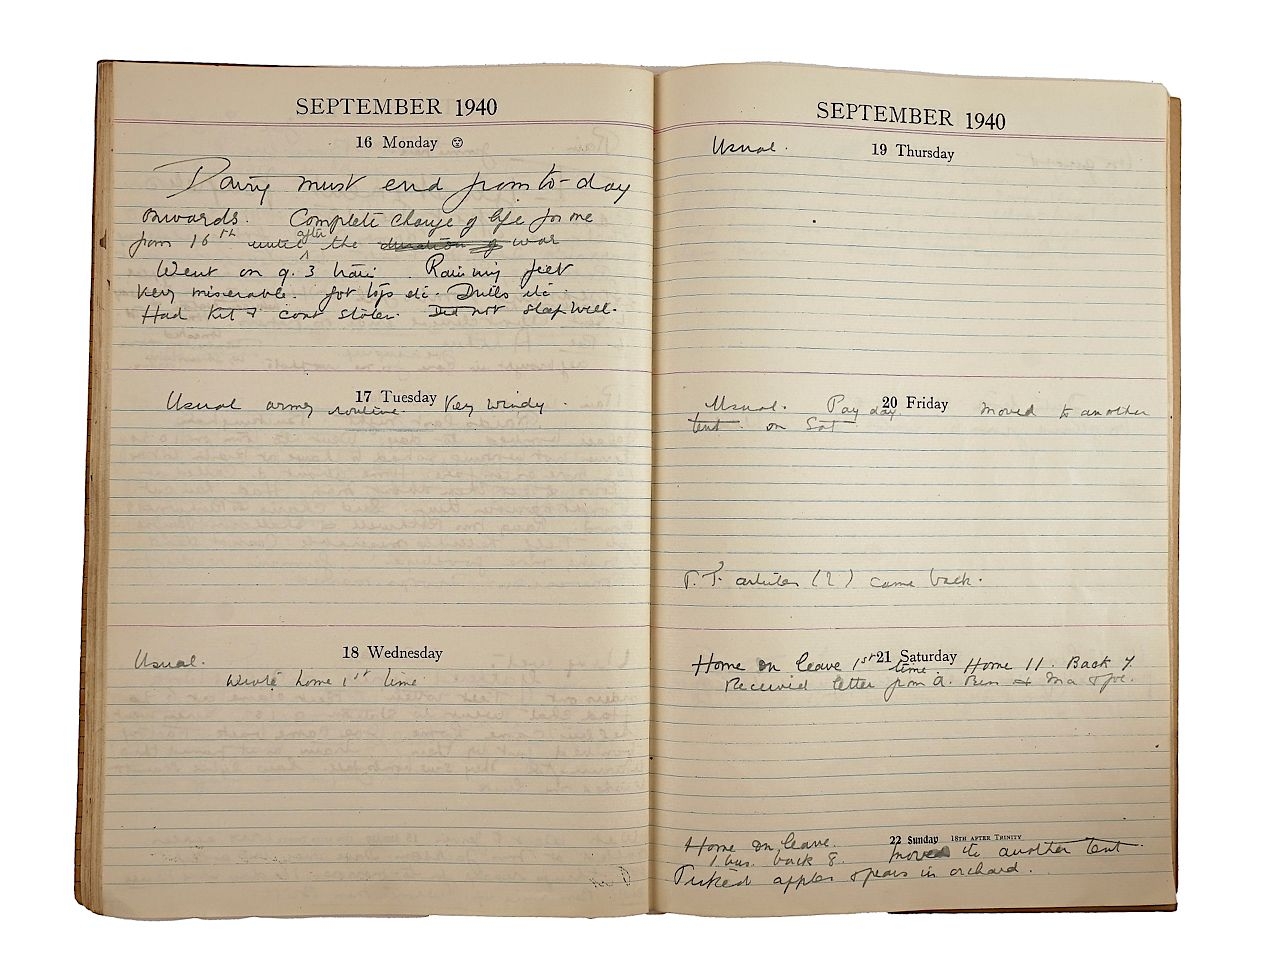 SEPTEMBER 1940
16 Monday
Dairy must end from to-day
onwards. Complete change of life for me
from 16th until after the duration of war
Went on 9.3 train. Raining feet
very miserable. Got togs etc. Drills etc.
Had kit & coat stolen. Did not sleep well.
17 Tuesday
Usual army routine. Very windy.
18 Wednesday
Usual.
Wrote home 1st time.
SEPTEMBER 1940
19 Thursday
Usual.
20 Friday
Usual. Pay day. Moved to another
tent on Sat
articles (2) came back.
21 Saturday
Home on leave 1st time. Home 11. Back 7.
Received letter from A. & Ma & Joe.
22 Sunday 18TH AFTER TRINITY
Home on leave. Moved to another tent.
1 bus. back 8.
Picked apples & pears in orchard.